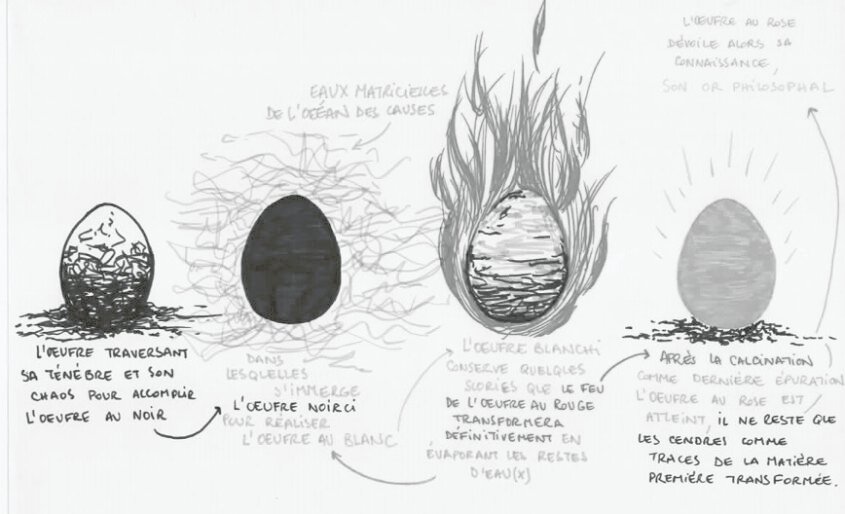 L'OEUFRE TRAVERSANT
SA TÉNÈBRE ET SON
CHAOS POUR ACCOMPLIR
L'OEUFRE AU NOIR
EAUX MATRICIELLES
DE L'OCÉAN DES CAUSES
DANS
LESQUELLES
S'IMMERGE
L'OEUFRE NOIRCI
POUR RÉALISER
L'OEUFRE AU BLANC
L'OEUFRE BLANCHI
CONSERVE QUELQUES
SCORIES QUE LE FEU
DE L'OEUFRE AU ROUGE
TRANSFORMERA
DÉFINITIVEMENT EN
ÉVAPORANT LES RESTES
D'EAU(X)
APRÈS LA CALCINATION
COMME DERNIÈRE ÉPURATION
L'OEUFRE AU ROSE EST
ATTEINT, IL NE RESTE QUE
LES CENDRES COMME
TRACES DE LA MATIÈRE
PREMIÈRE TRANSFORMÉE.
L'OEUFRE AU ROSE
DÉVOILE ALORS SA
CONNAISSANCE,
SON OR PHILOSOPHAL